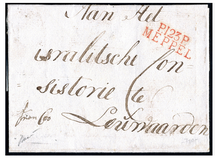 Aan Het
P123P
MEPPEL
israëlitsche Con-
sistorie te
Leeuwaarden